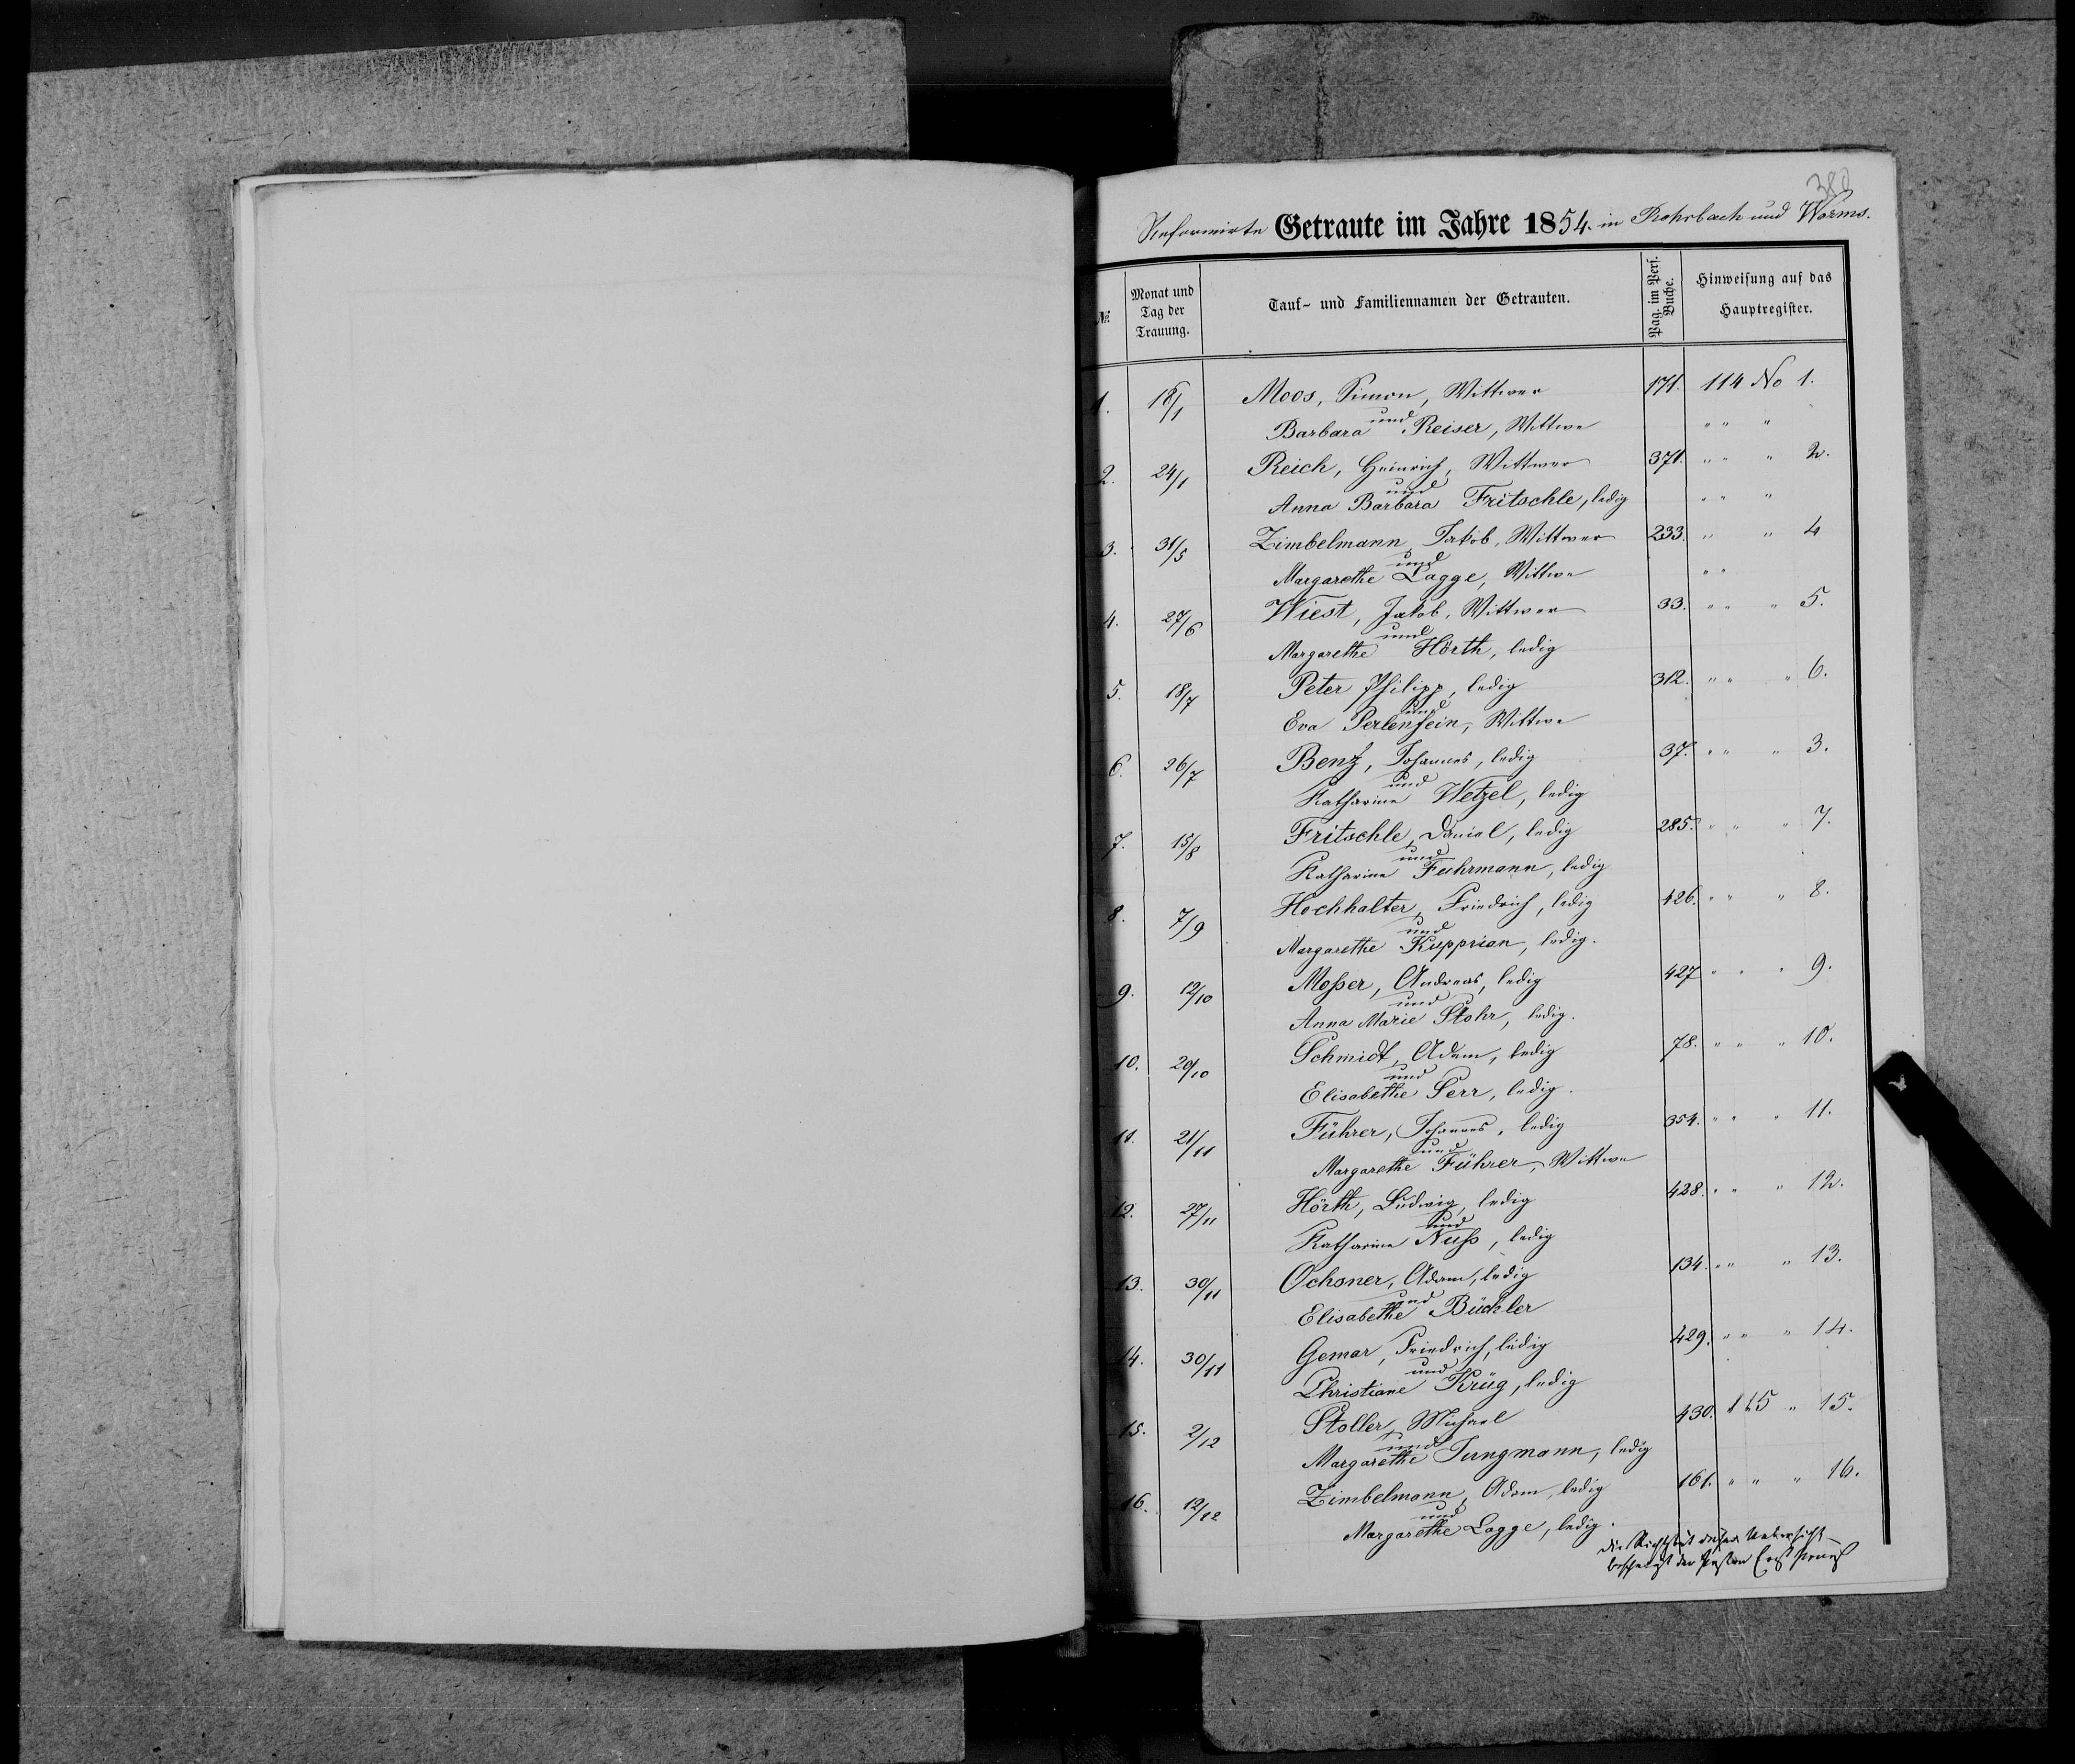 380
Reformirte Getraute im Jahre 1854. in Rohrbach und Worms.
№ Monat und Tag der Trauung. Tauf- und Familiennamen der Getrauten. Pag. im Pers. Buche. Hinweisung auf das Hauptregister.
1. 18/1 Moos, Simon, Wittwer 171. 114 No 1.
und
Barbara Reiser, Wittwe " " "
2. 24/1 Reich, Heinrich, Wittwer 371. " " " 2.
und
Anna Barbara Fritschle, ledig " " "
3. 31/5 Zimbelmann, Jakob, Wittwer 233. " " 4
und
Margarethe Lagge, Wittwe " "
4. 27/6 Wiest, Jakob, Wittwer 33. " " " 5.
und
Margarethe Hörth, ledig
5. 18/7 Peter Philipp, ledig 312. " " " 6.
und
Eva Perlenfein, Wittwe
6. 26/7 Benz, Johannes, ledig 37. " " " 3.
und
Katharina Wetzel, ledig
7. 15/8 Fritschle, Daniel, ledig 285. " " " 7.
und
Katharina Fuhrmann, ledig
8. 7/9 Hochhalter, Friedrich, ledig 426. " " " 8.
und
Margarethe Kupprian, ledig.
9. 12/10 Moßer, Andreas, ledig 427 " " " 9.
und
Anna Marie Stohr, ledig.
10. 20/10 Schmidt, Adam, ledig 78. " " " 10.
und
Elisabethe Serr, ledig.
11. 21/11 Führer, Johannes, ledig 354. " " " 11.
und
Margarethe Führer, Wittwe
12. 27/11 Hörth, Ludwig, ledig 428. " " " 12.
und
Katharina Nuß, ledig
13. 30/11 Ochsner, Adam, ledig 134. " " " 13.
und
Elisabethe Büchler
14. 30/11 Gemar, Friedrich, ledig 429. " " " 14.
und
Christiane Krüg, ledig
15. 2/12 Stoller, Michael 430. 115 " 15.
und
Margarethe Jungmann, ledig
16. 12/12 Zimbelmann, Adam, ledig 161. " " " 16.
und
Margarethe Lagge, ledig.
die Richtigkeit dieser Uebersicht
bescheinigt der Pastor